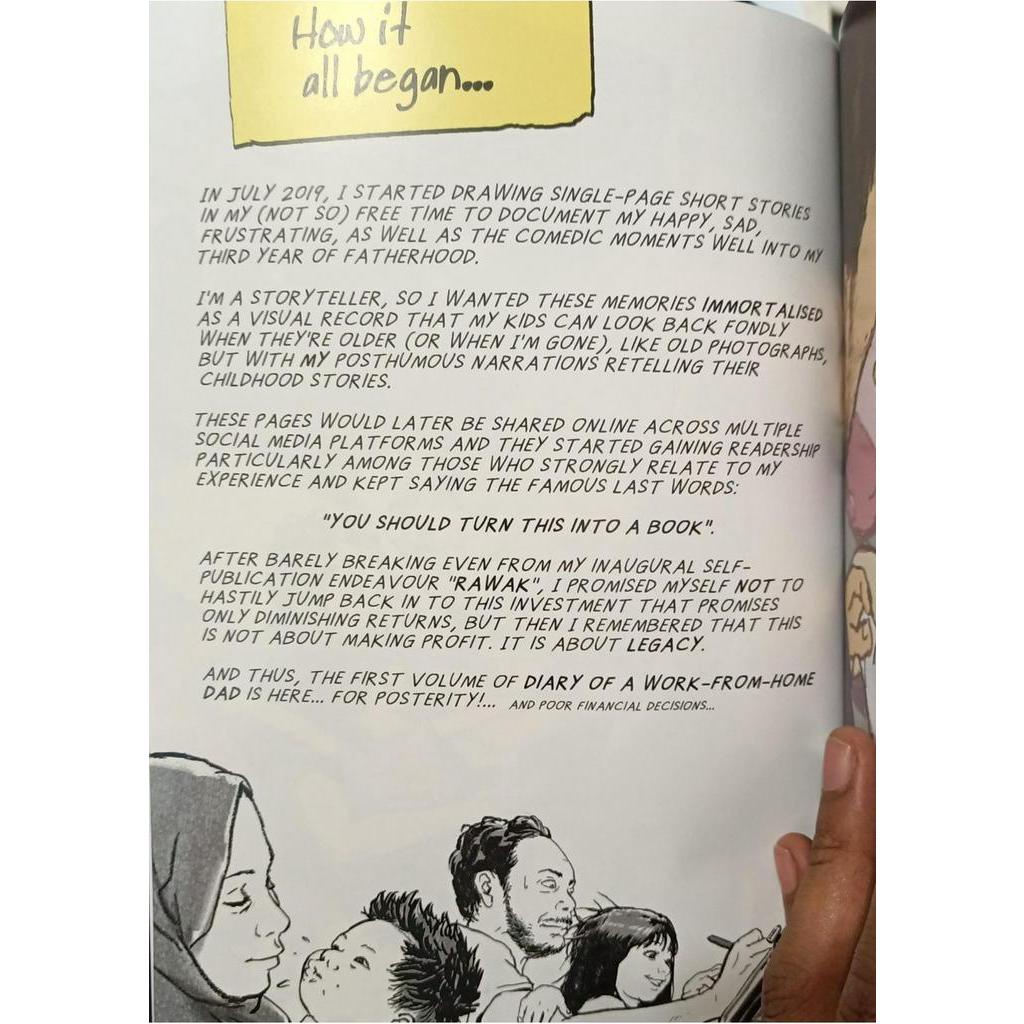 How it
all began...
IN JULY 2019, I STARTED DRAWING SINGLE-PAGE SHORT STORIES
IN MY (NOT SO) FREE TIME TO DOCUMENT MY HAPPY, SAD,
FRUSTRATING, AS WELL AS THE COMEDIC MOMENTS WELL INTO MY
THIRD YEAR OF FATHERHOOD.
I'M A STORYTELLER, SO I WANTED THESE MEMORIES IMMORTALISED
AS A VISUAL RECORD THAT MY KIDS CAN LOOK BACK FONDLY
WHEN THEY'RE OLDER (OR WHEN I'M GONE), LIKE OLD PHOTOGRAPHS,
BUT WITH MY POSTHUMOUS NARRATIONS RETELLING THEIR
CHILDHOOD STORIES.
THESE PAGES WOULD LATER BE SHARED ONLINE ACROSS MULTIPLE
SOCIAL MEDIA PLATFORMS AND THEY STARTED GAINING READERSHIP
PARTICULARLY AMONG THOSE WHO STRONGLY RELATE TO MY
EXPERIENCE AND KEPT SAYING THE FAMOUS LAST WORDS:
"YOU SHOULD TURN THIS INTO A BOOK".
AFTER BARELY BREAKING EVEN FROM MY INAUGURAL SELF-
PUBLICATION ENDEAVOUR "RAWAK", I PROMISED MYSELF NOT TO
HASTILY JUMP BACK IN TO THIS INVESTMENT THAT PROMISES
ONLY DIMINISHING RETURNS, BUT THEN I REMEMBERED THAT THIS
IS NOT ABOUT MAKING PROFIT. IT IS ABOUT LEGACY.
AND THUS, THE FIRST VOLUME OF DIARY OF A WORK-FROM-HOME
DAD IS HERE... FOR POSTERITY!... AND POOR FINANCIAL DECISIONS...